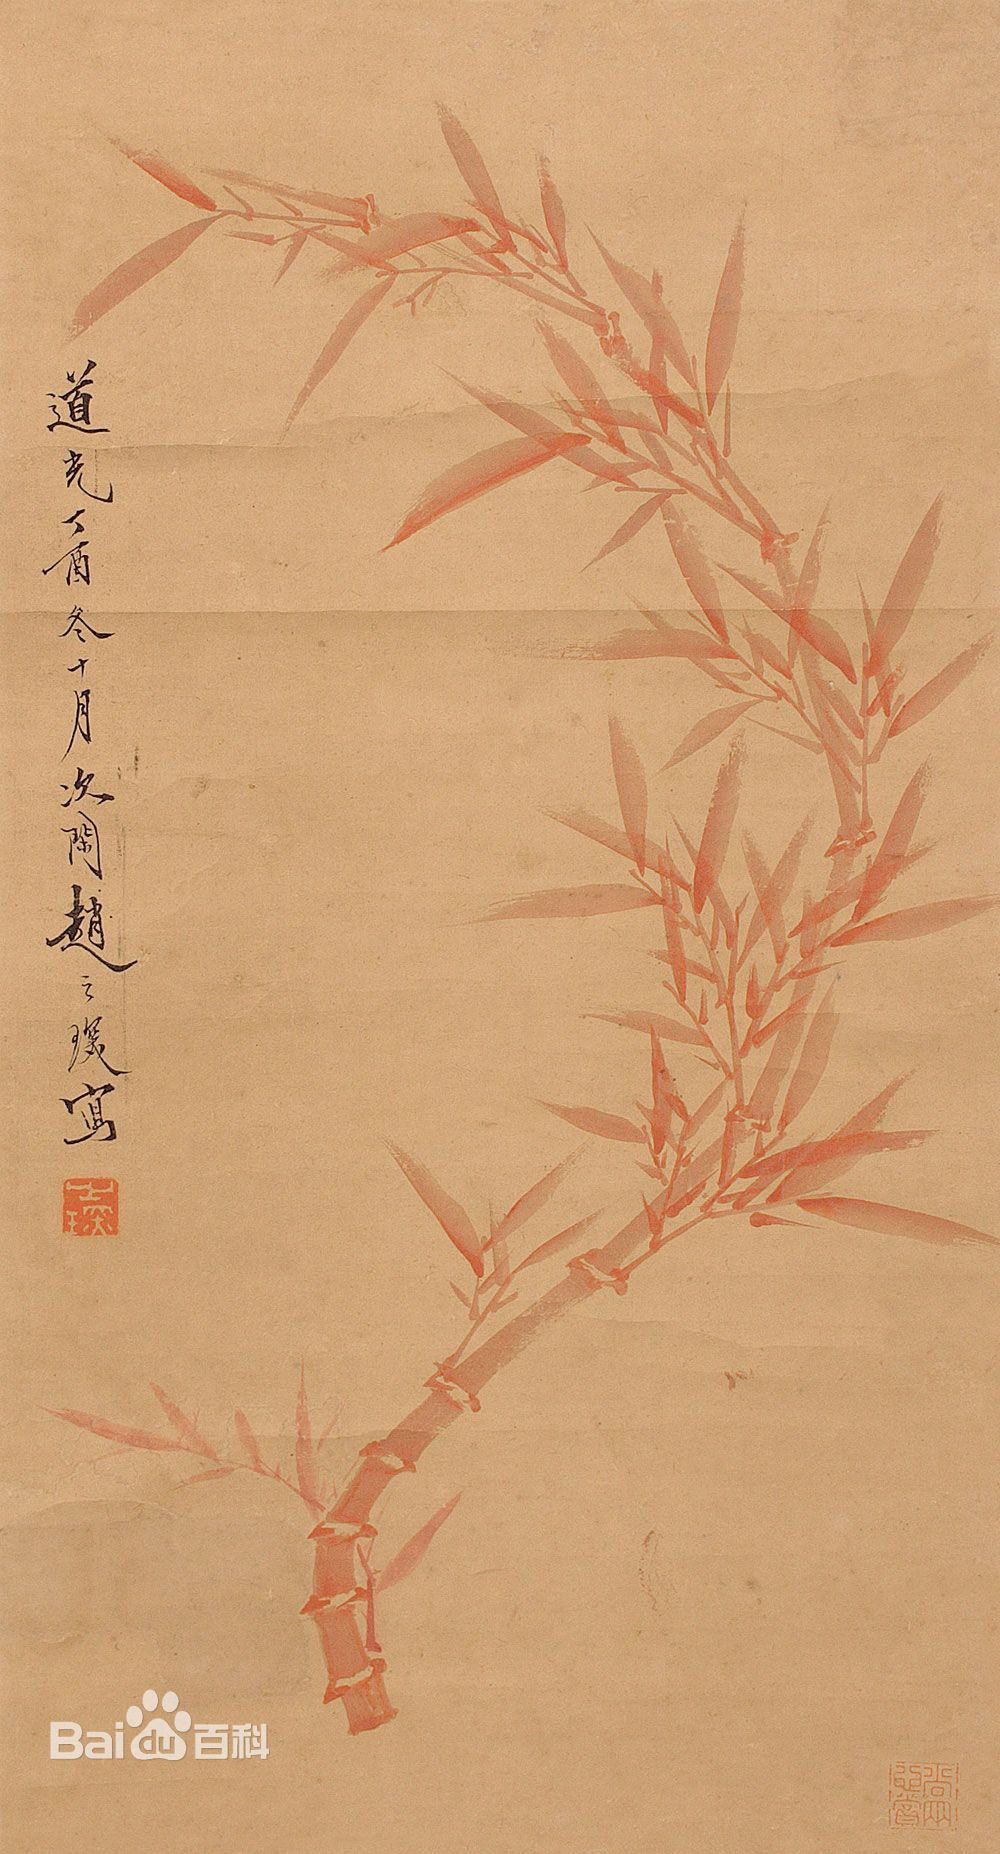 道光丁酉冬十月次閑趙之琛寫
之琛
Bai百科